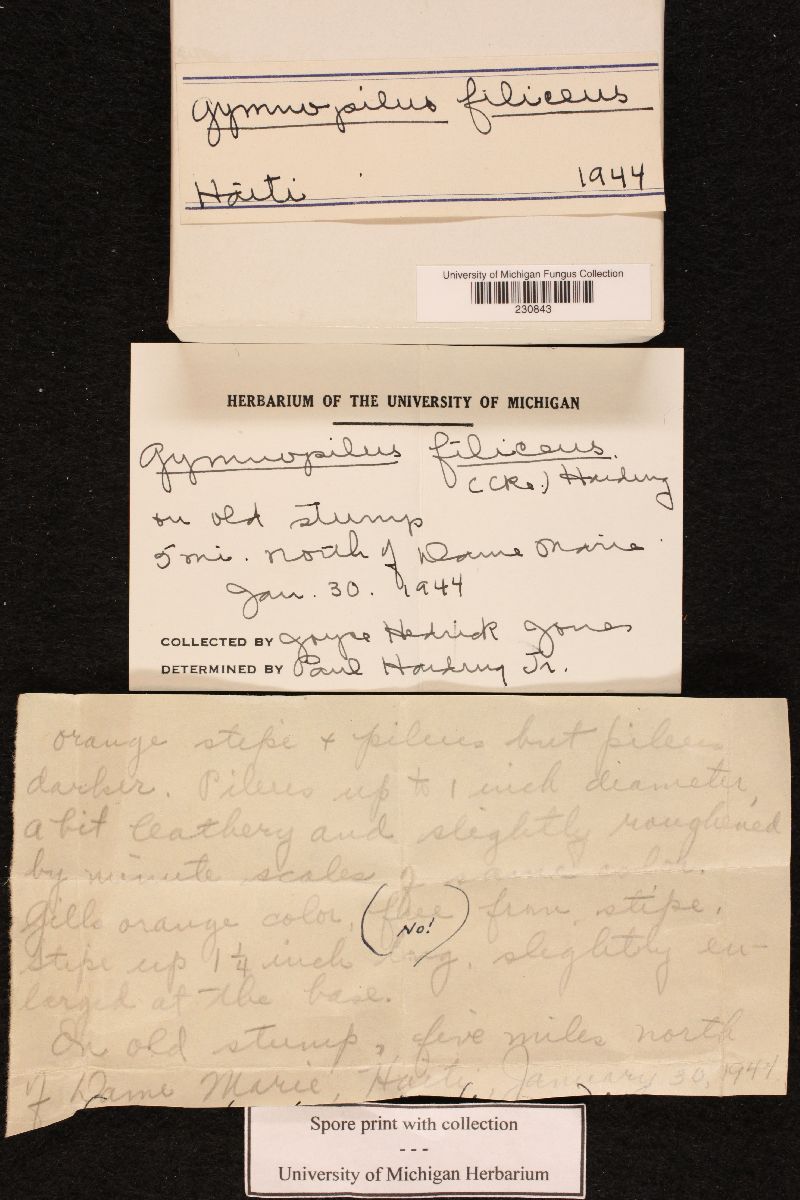 Gymnopilus filiceus
Haiti 1944
University of Michigan Fungus Collection
230843
HERBARIUM OF THE UNIVERSITY OF MICHIGAN
Gymnopilus filiceus.
(Cke.) Harding
on old stump
5 mi. north of Dame Marie
Jan. 30. 1944
COLLECTED BY Joyce Hedrick Jones
DETERMINED BY Paul Harding Jr.
orange stipe + pileus but pileus
darker. Pileus up to 1 inch diameter,
a bit leathery and slightly roughened
by minute scales of same color.
Gills orange color, (free from stipe.
No!)
stipe up 1 1/4 inch long, slightly en-
larged at the base.
On old stump, five miles north
of Dame Marie, Haiti, January 30, 1944
Spore print with collection
---
University of Michigan Herbarium